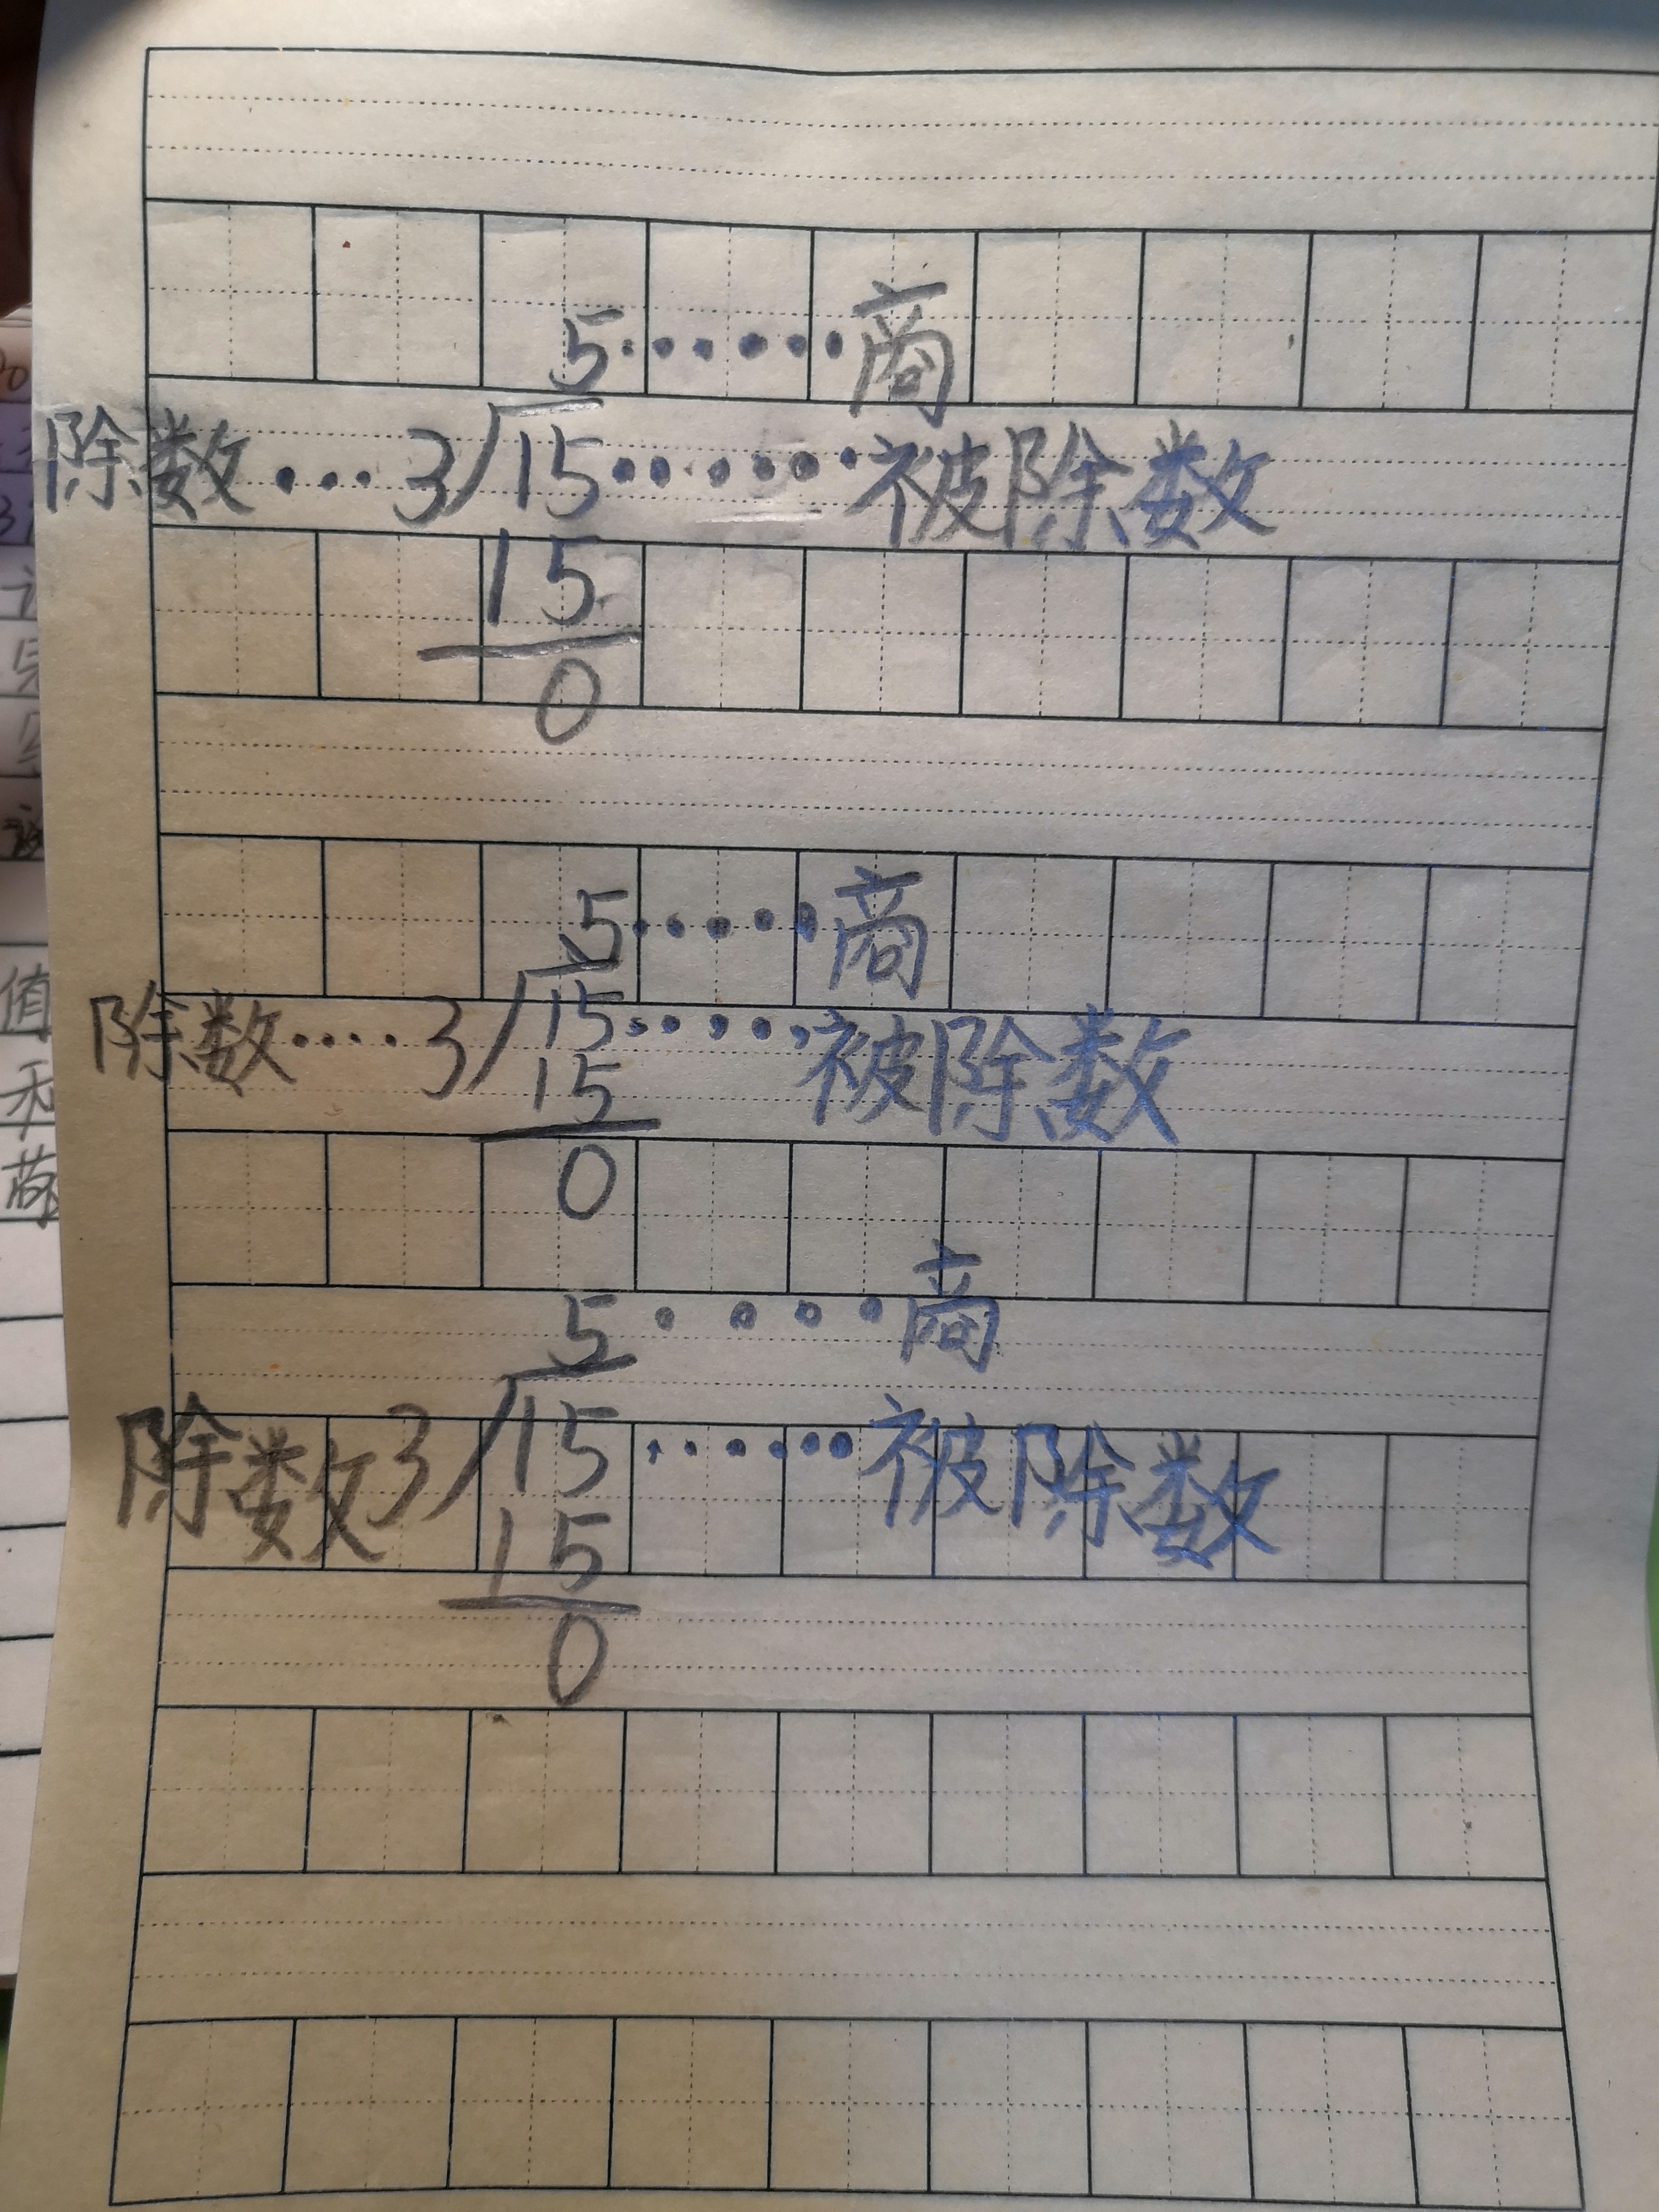 5······商
除数···3√15······被除数
15
0
5·····商
除数····3√15·····被除数
15
0
5····商
除数3√15······被除数
15
0
值
禾